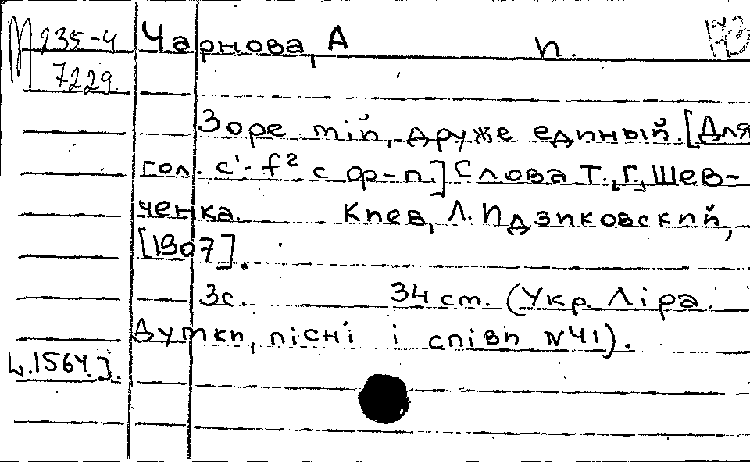 М 235-4 Чарнова, А п.
7229
Зоре мій, друже единый. [Для
гол. c¹-f² с ор-п.] Слова Т.Г. Шев-
ченка. Киев, Л. Идзиковский,
[1907].
3с. 34 см. (Укр. Ліра.
Думки, пісні і співи №41).
L.1564.].